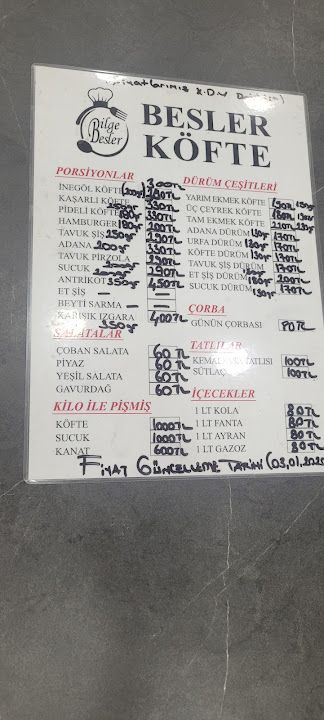 Fiyatlarımız K.D.V Dahildir)
Bilge
Besler
BESLER
KÖFTE
PORSİYONLAR
İNEGÖL KÖFTE (200gr) 280TL
KAŞARLI KÖFTE 330TL
PİDELİ KÖFTE 180gr 330TL
HAMBURGER 180gr 200TL
TAVUK ŞİŞ 250gr 250TL
ADANA 200gr 330TL
TAVUK PİRZOLA 290TL
SUCUK 290TL
ANTRİKOT 250gr 450TL
ET ŞİŞ —
BEYTİ SARMA — —
KARIŞIK IZGARA 350gr 400TL
SALATALAR
ÇOBAN SALATA 60TL
PİYAZ 60TL
YEŞİL SALATA 60TL
GAVURDAĞ 60TL
KİLO İLE PİŞMİŞ
KÖFTE 1000TL
SUCUK 1000TL
KANAT 600TL
DÜRÜM ÇEŞİTLERİ
YARIM EKMEK KÖFTE
ÜÇ ÇEYREK KÖFTE
TAM EKMEK KÖFTE
ADANA DÜRÜM 130gr 170TL
URFA DÜRÜM 130gr 170TL
KÖFTE DÜRÜM 130gr 170TL
TAVUK ŞİŞ DÜRÜM 170TL
ET ŞİŞ DÜRÜM 180gr 200TL
SUCUK DÜRÜM 130gr 170TL
ÇORBA
GÜNÜN ÇORBASI 90TL
TATLILAR
KEMALPAŞA TATLISI 100TL
SÜTLAÇ 100TL
İÇECEKLER
1 LT KOLA 80TL
1 LT FANTA 80TL
1 LT AYRAN 80TL
1 LT GAZOZ 80TL
FİYAT GÜNCELLEME TARİHİ (03.01.2025